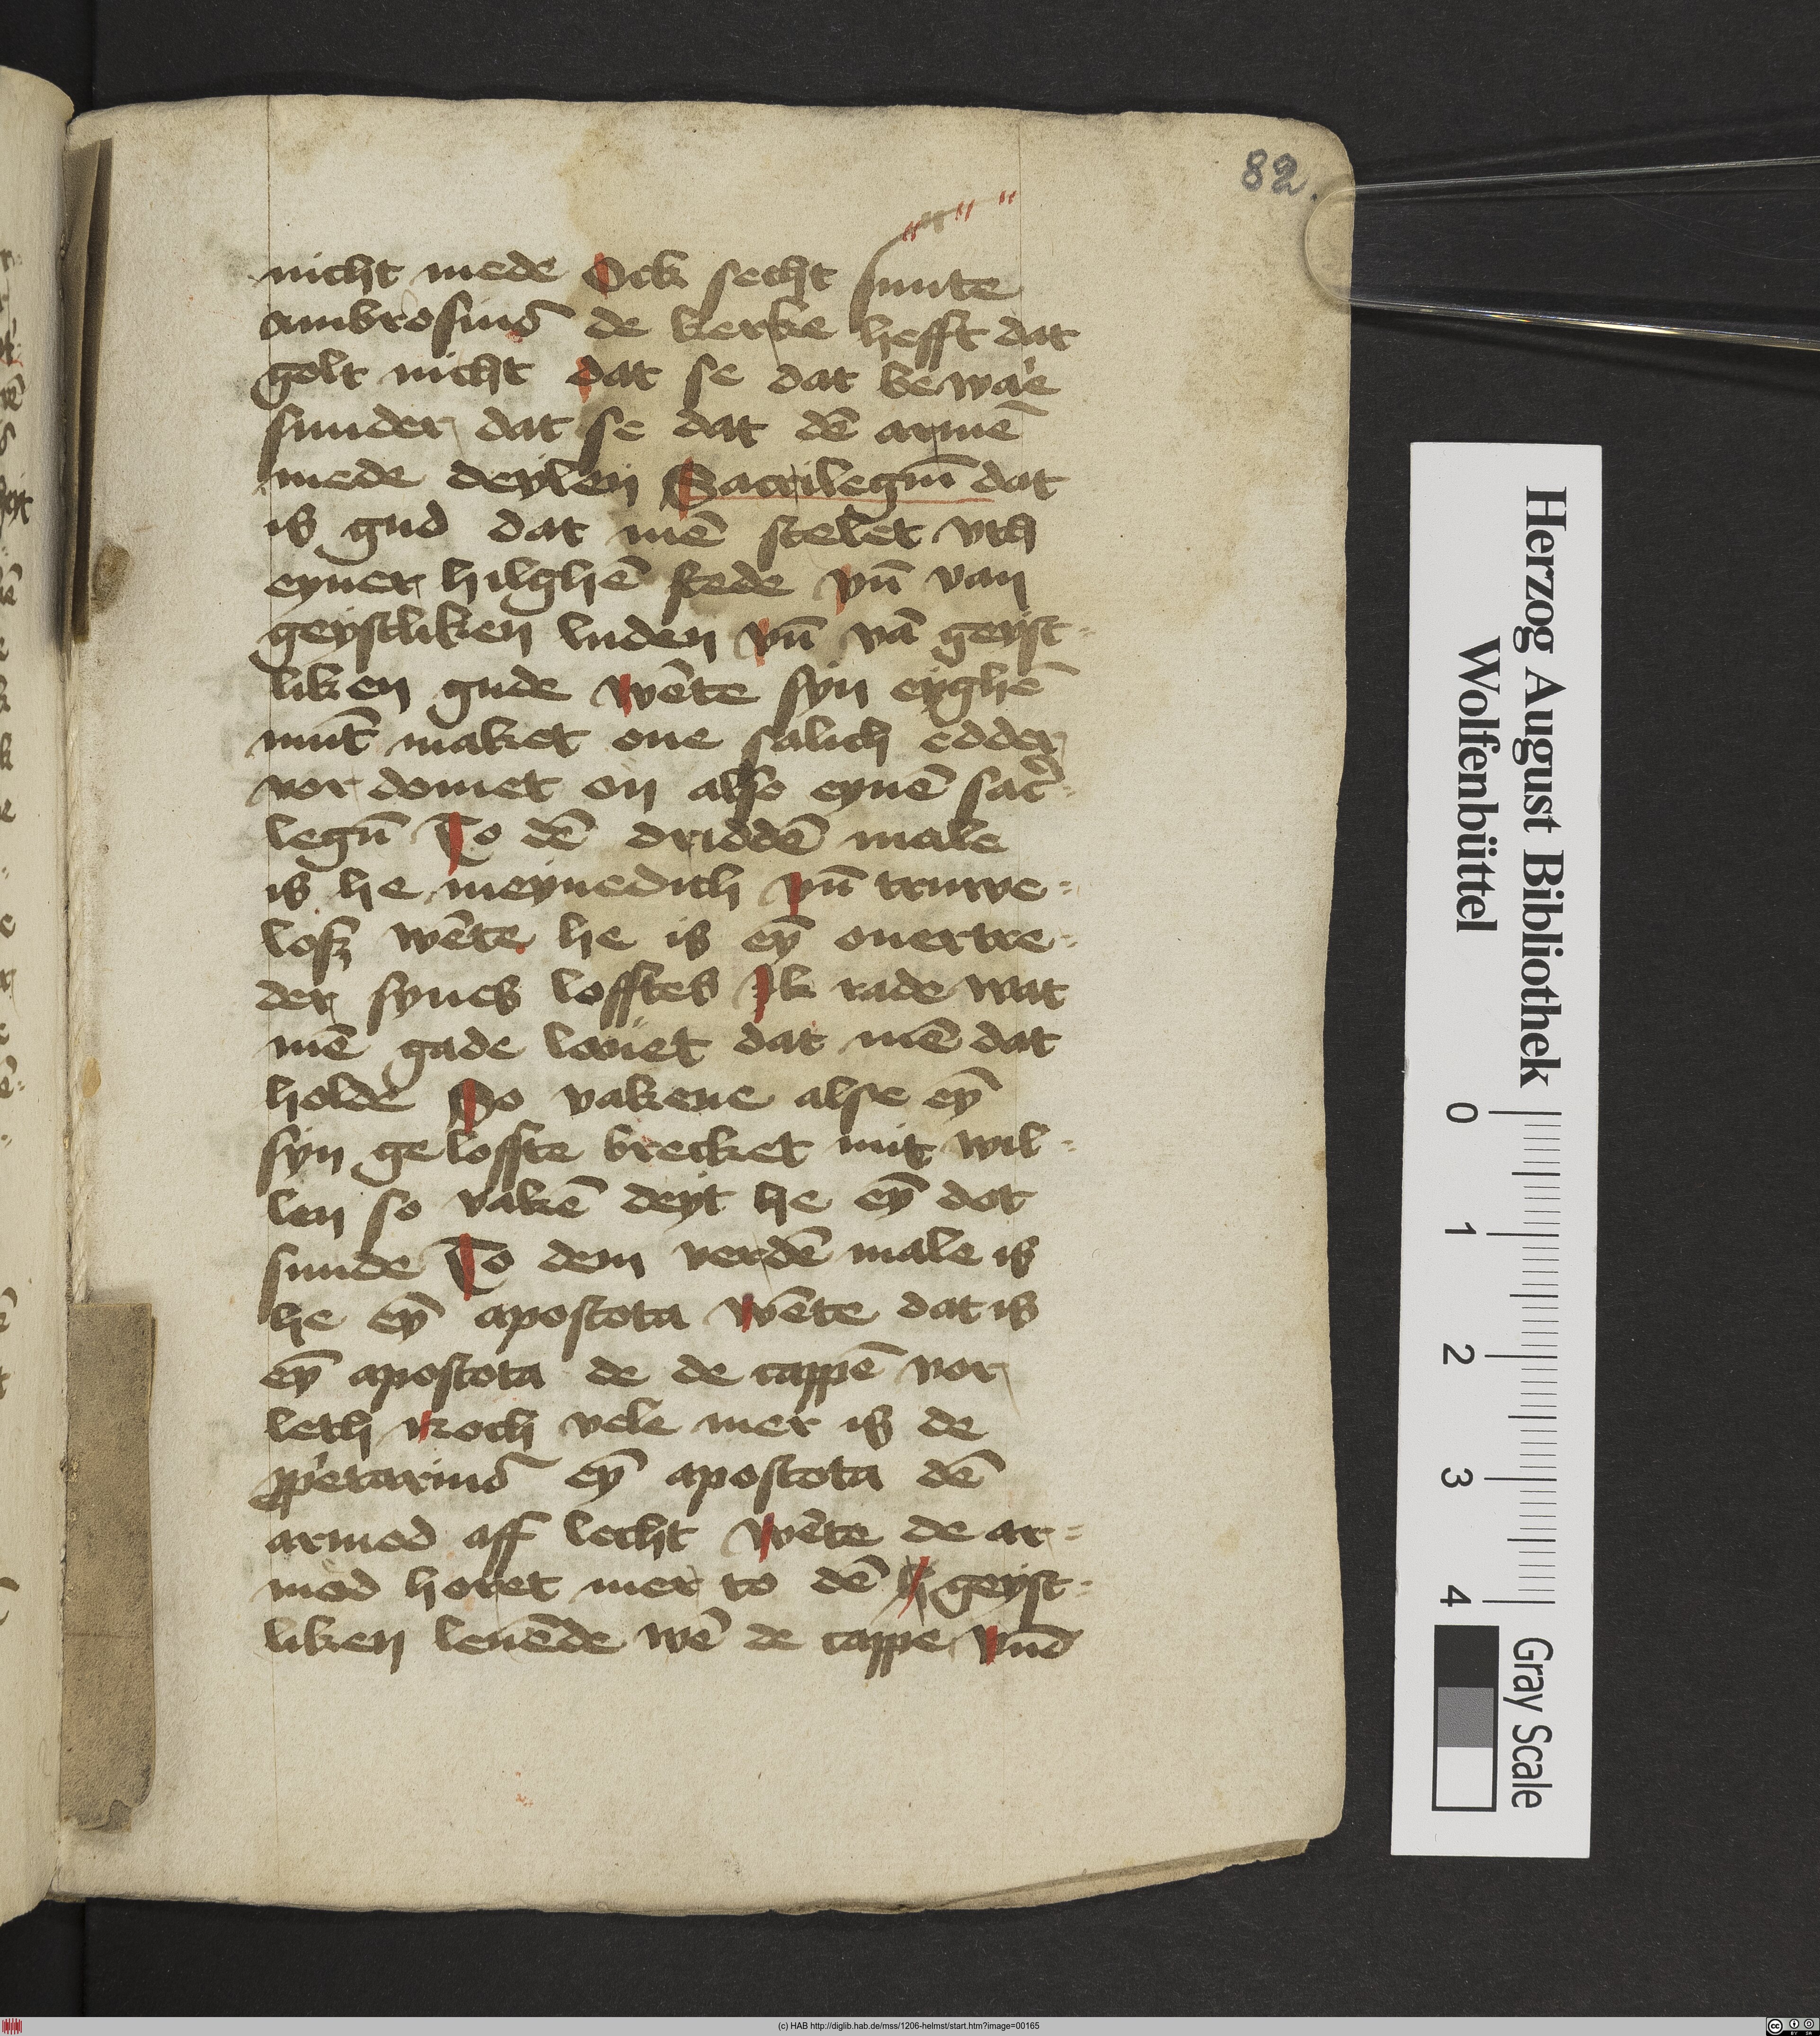 82.
nicht mede Ock secht sunte
ambrosius de kerke hefft dat
golt nicht dat se dat beware
sunder dat se dat dē armē
mede deylen Sacrilegiū dat
is gud dat mē stelet vth
eyner hilghē stede vn̄ van
geystliken luden vn̄ vā geyst-
liken gude wēte syn eyghē
mūt maket one salich edder
vor domet on also eynē sacͥ-
legū To dē driddē male
is he meynedich vn̄ truwe-
loß wēte he is eȳ ouertre-
der synes lofftes Ik rade wat
mē gade louet dat mē dat
holde So vakene alse eȳ
syn geloffte brecket mit wil-
len so vakē deyt he eȳ dot
sunde To dem verdē male is
he eȳ apostota wēte dat is
eȳ apostota de de cappē vor
leth Noch vele mer is de
ꝓpͥetarius eȳ apostota dē
armod aff lecht wēte de ar-
mod horet mer to dē geyst-
liken leuēde wē de cappe vnd
Herzog August Bibliothek
Wolfenbüttel
0 1 2 3 4
Gray Scale
(c) HAB http://diglib.hab.de/mss/1206-helmst/start.htm?image=00165